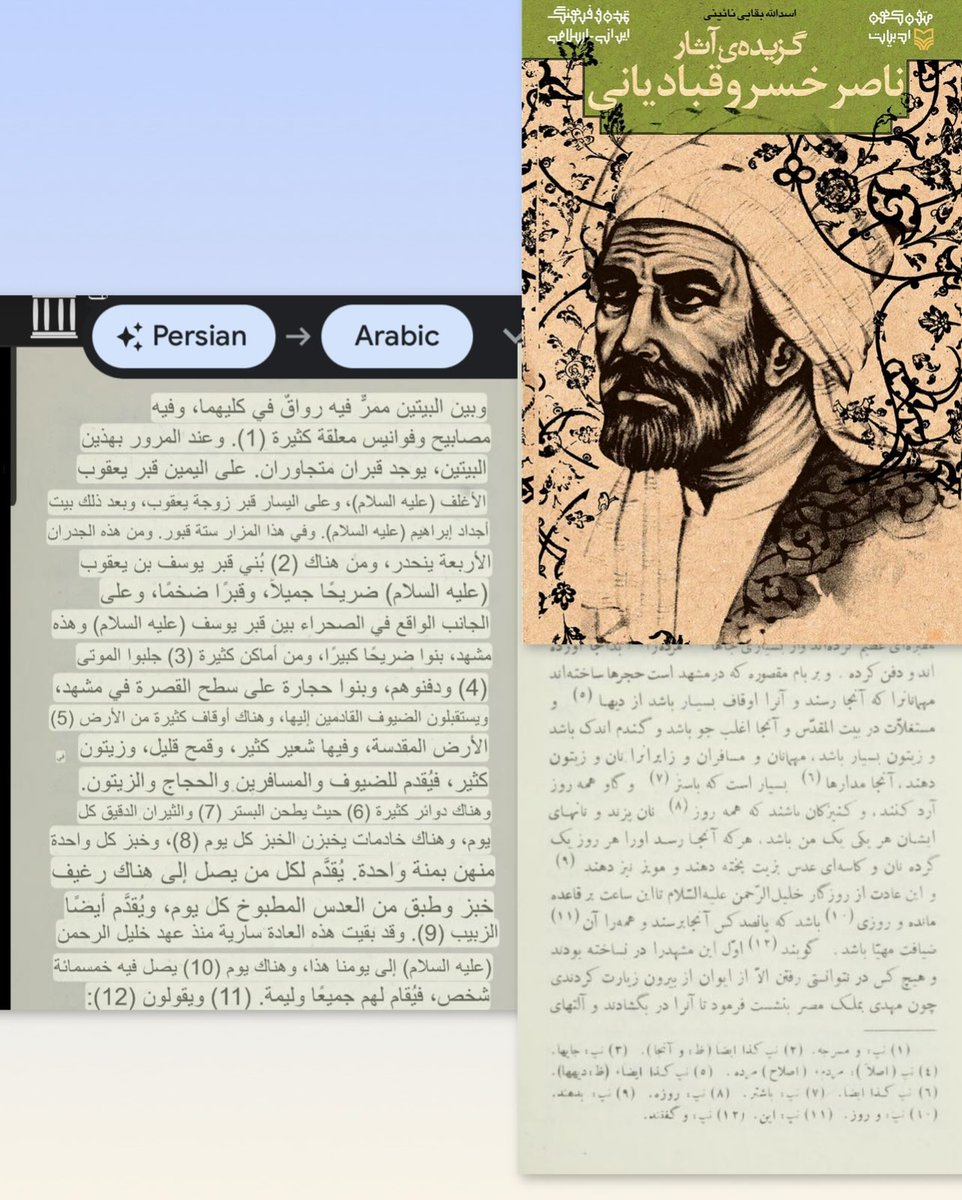 اسدالله بقایی نائینی
تمدن و فرهنگ
ایرانی-اسلامی
متون کهن
ادبیات
گزیده‌ی آثار
ناصر خسرو قبادیانی
Persian → Arabic
وبين البيتين ممرٌّ فيه رواقٌ في كليهما، وفيه
مصابيح وفوانيس معلقة كثيرة (1). وعند المرور بهذين
البيتين، يوجد قبران متجاوران. على اليمين قبر يعقوب
الأغلف (عليه السلام)، وعلى اليسار قبر زوجة يعقوب، وبعد ذلك بيت
أجداد إبراهيم (عليه السلام). وفي هذا المزار ستة قبور. ومن هذه الجدران
الأربعة ينحدر، ومن هناك (2) بُني قبر يوسف بن يعقوب
(عليه السلام) ضريحًا جميلًا، وقبرًا ضخمًا، وعلى
الجانب الواقع في الصحراء بين قبر يوسف (عليه السلام) وهذه
مشهد، بنوا ضريحًا كبيرًا، ومن أماكن كثيرة (3) جلبوا الموتى
(4) ودفنوهم، وبنوا حجارة على سطح القصرة في مشهد،
ويستقبلون الضيوف القادمين إليها، وهناك أوقاف كثيرة من الأرض (5)
الأرض المقدسة، وفيها شعير كثير، وقمح قليل، وزيتون في
كثير، فيُقدم للضيوف والمسافرين والحجاج والزيتون.
وهناك دوائر كثيرة (6) حيث يطحن البستر (7) والثيران الدقيق كل
يوم، وهناك خادمات يخبزن الخبز كل يوم (8)، وخبز كل واحدة
منهن بمنة واحدة. يُقدَّم لكل من يصل إلى هناك رغيف
خبز وطبق من العدس المطبوخ كل يوم، ويُقدَّم أيضًا
الزبيب (9). وقد بقيت هذه العادة سارية منذ عهد خليل الرحمن
(عليه السلام) إلى يومنا هذا، وهناك يوم (10) يصل فيه خمسمائة
شخص، فيُقام لهم جميعًا وليمة. (11) ويقولون (12):
اند و دفن کرده . و بر بام مقصوره که در مشهد است حجرها ساخته‌اند
مهمانانرا که آنجا رسند و آنرا اوقاف بسیار باشد از دیها (۵) و
مستغلّات در بیت المقدّس و آنجا اغلب جو باشد و گندم اندک باشد
و زیتون بسیار باشد، مهمانان و مسافران و زایرانرا نان و زیتون
دهند. آنجا مدارها (۶) بسیار است که باستر (۷) و گاو همه روز
آرد کنند، و کنیزکان باشند که همه روز (۸) نان پزند و نانهای
ایشان هر یکی یک من باشد، هرکه آنجا رسد اورا هر روز یک
گرده نان و کاسه‌ای عدس بزیت پخته دهند و مویز نیز دهند (۹)
و این عادت از روزگار خلیل‌الرّحمن علیه‌السّلام تا این ساعت بر قاعده
مانده و روزی (۱۰) باشد که پانصد کس آنجا برسند و همه‌را آن (۱۱)
ضیافت مهیّا باشد . گویند (۱۲) اوّل این مشهدرا در نساخته بودند
و هیچ کس در نتوانستی رفتن الاّ از ایوان از بیرون زیارت کردندی
چون مهدی بملک مصر بنشست فرمود تا آنرا در بگشادند و آلتهای
(۱) نپ: و مسرجه. (۲) نپ کذا ایضا (ظ: و آنجا). (۳) نپ: جایها.
(۴) نپ (اصلا): مرده، (اصلاح) مرده. (۵) نپ کذا ایضا، (ظ: دیهها).
(۶) نپ کذا ایضا. (۷) نپ: باشتر. (۸) نپ: روزه. (۹) نپ: بدهند.
(۱۰) نپ: و روز. (۱۱) نپ: این. (۱۲) نپ: و گفتند.